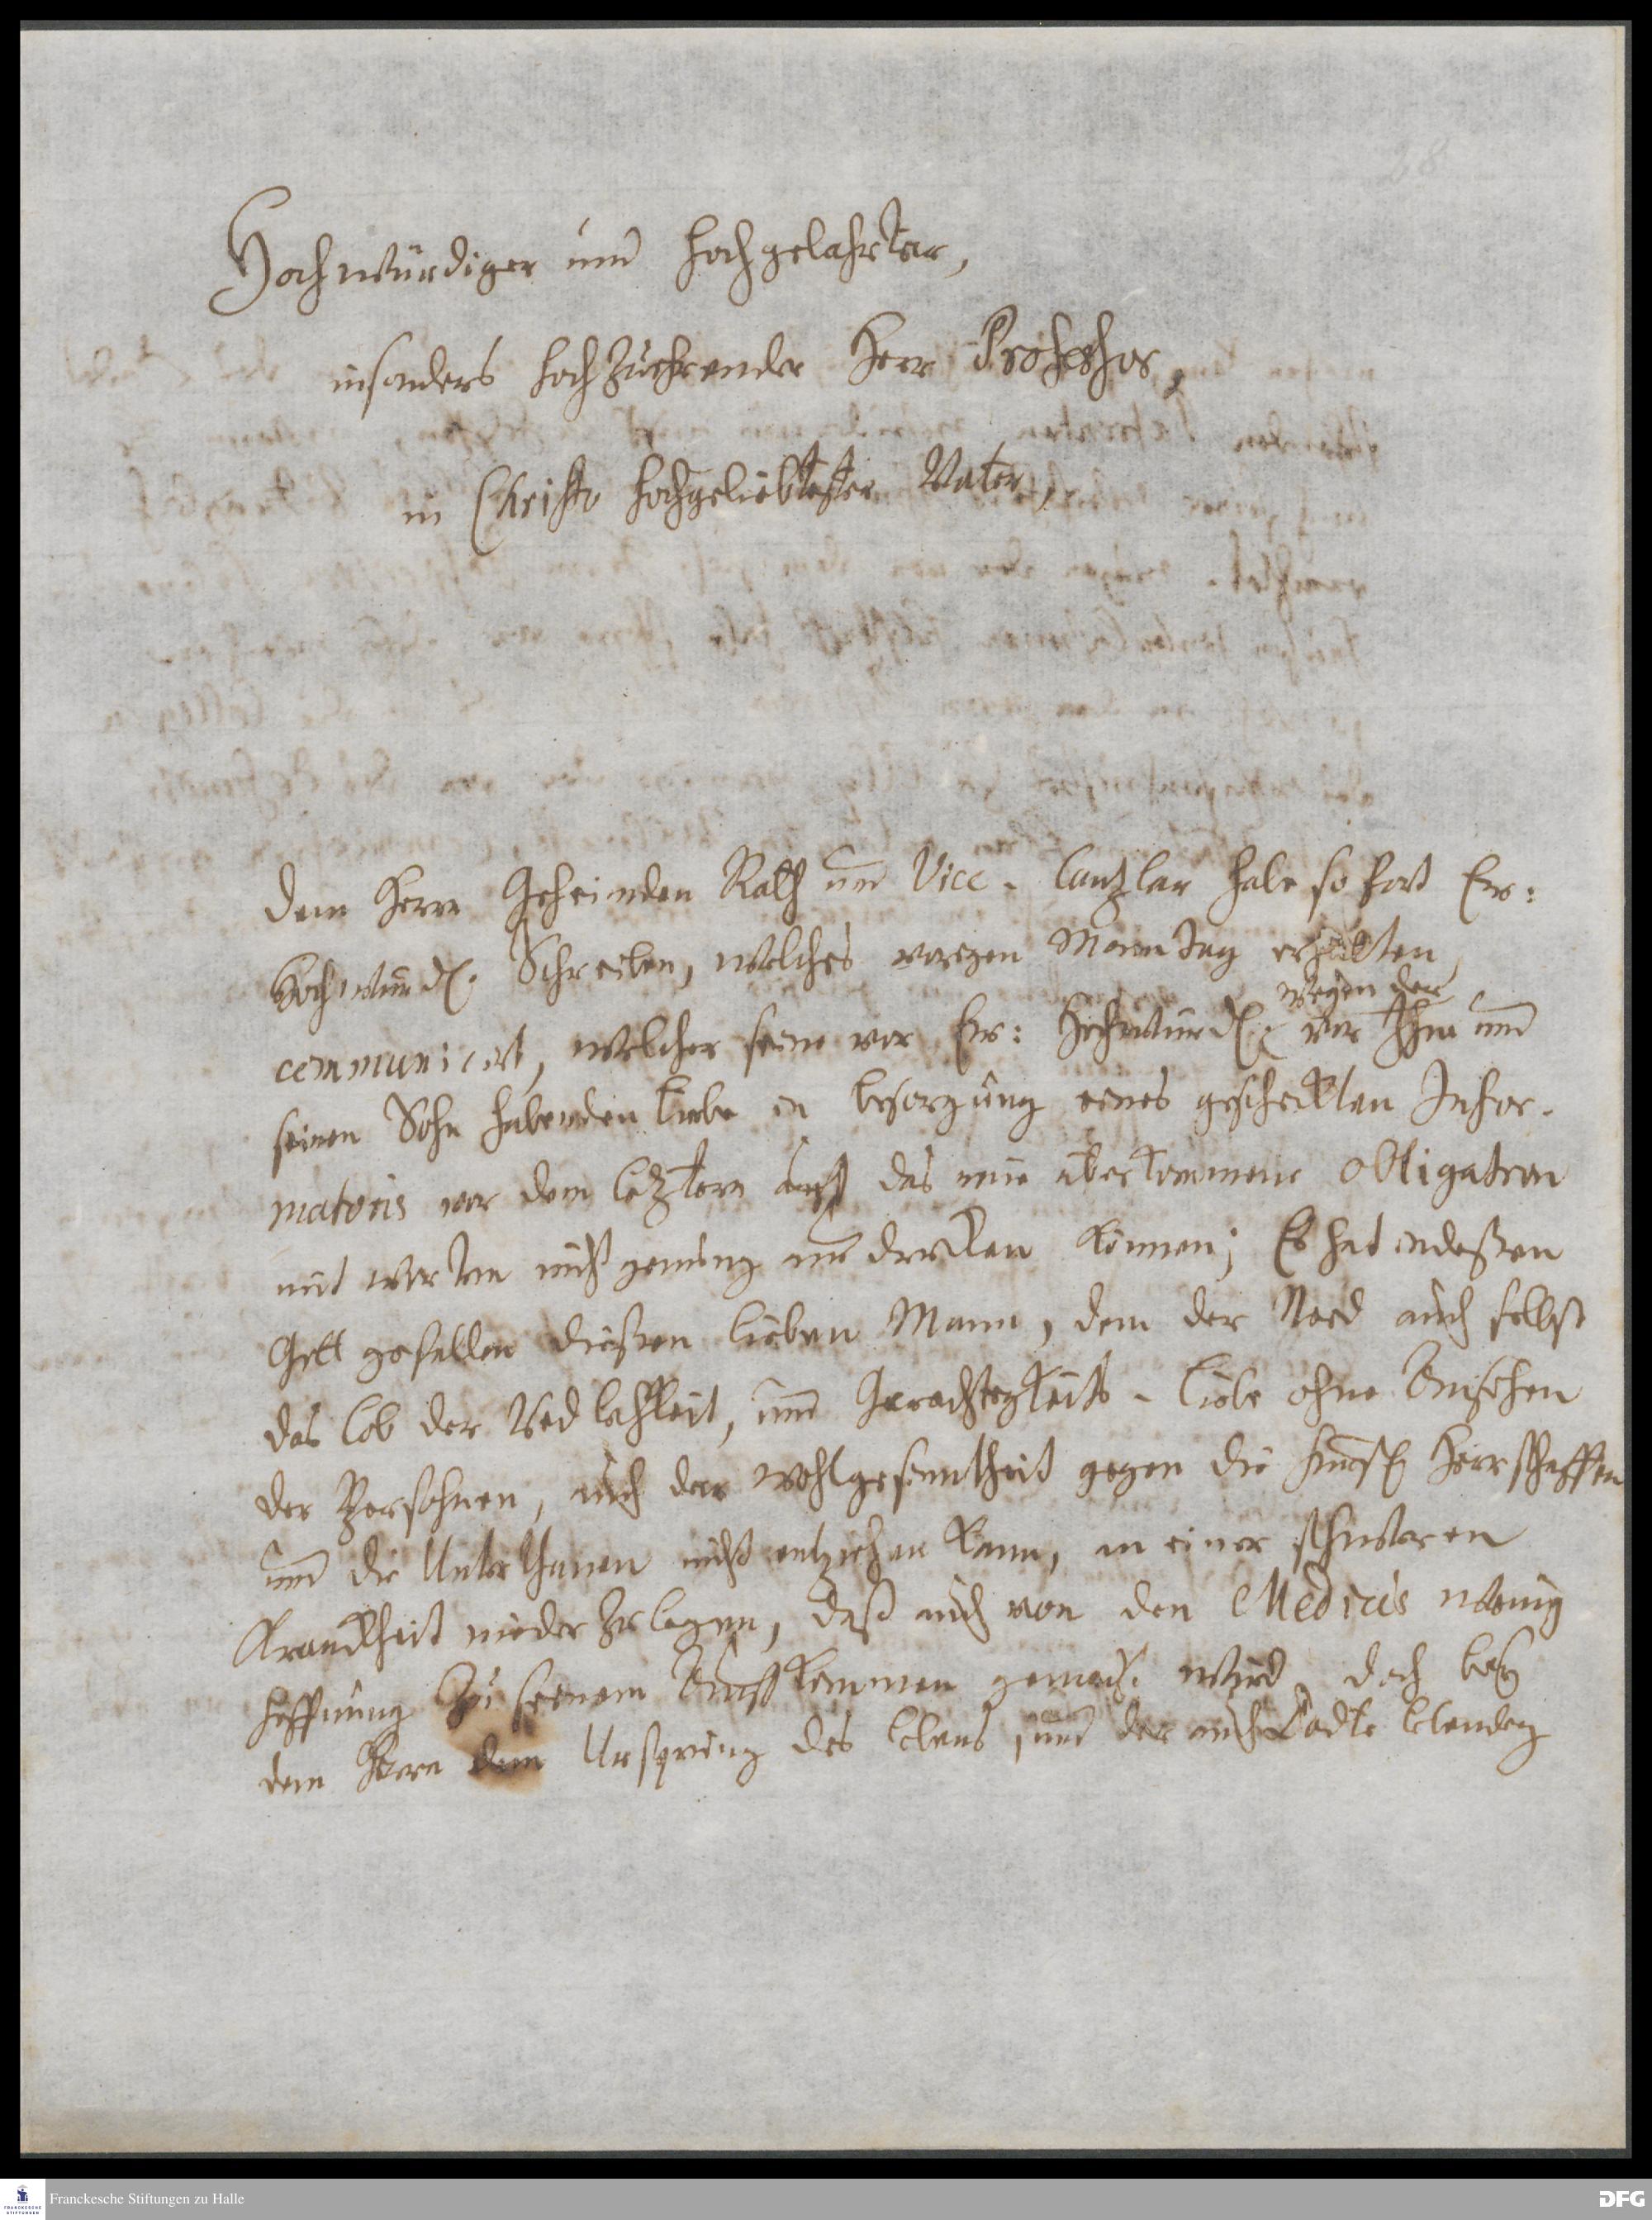 28
Hochwürdiger und Hochgelahrter,
insonders Hochzuehrender Herr Professor,
in Christo Hochgeliebtester Vater,
Dem Herrn Geheimden Rath und Vice-Cantzlar habe sofort Ew:
Hochwürd. Schreiben, welches vorgen Monntag erhalten,
wegen der
communicirt, welcher seine vor Ew: Hochwürd. vor Ihn und
seinen Sohn habenden Liebe in besorgung eines geschickten Infor-
matoris vor dem letztern auff das neue überkommene obligation
mit worten nicht genung aus drücken können; Es hat indessen
Gott gefallen diessen lieben Mann, dem der Neid auch selbst
das Lob der Redlichkeit, und Gerechtigkeits-Liebe ohne Ansehen
der Persohnen, auch der wohlgesinntheit gegen die Hochfl. Herrschafften
und die Unterthanen nicht entziehen kann, in einer schweren
Kranckheit nieder zu legen, daß auch von den Medicis wenig
Hoffnung zu seinem Auffkommen gemacht wird, doch bey
dem Herrn dem Ursprung des Lebens, und der auch Todte lebendig
Franckesche Stiftungen zu Halle
FRANCKESCHE STIFTUNGEN
DFG